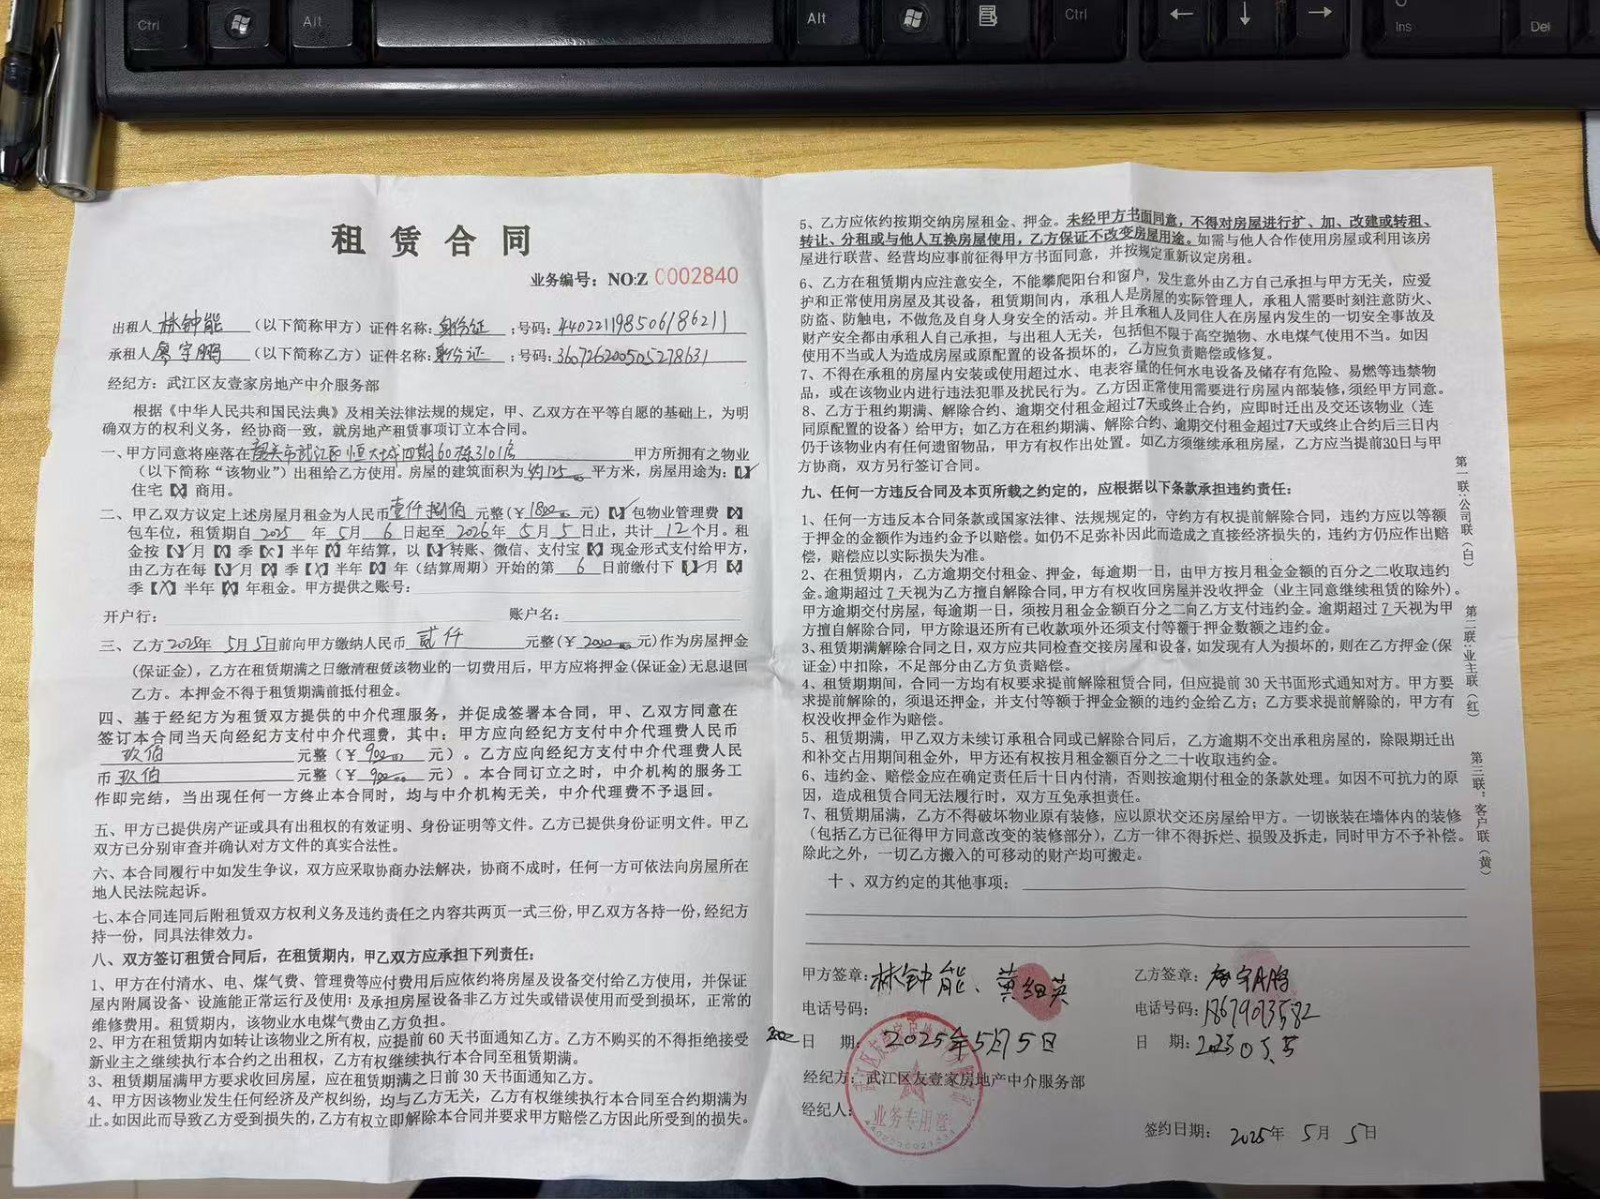 Ctrl
Alt
Alt
Ctrl
Ins
Del
租赁合同
业务编号：NO:Z 0002840
出租人 林钟能 （以下简称甲方）证件名称：身份证 ；号码：440221198506186211
承租人 廖宇鹏 （以下简称乙方）证件名称：身份证 ；号码：360726200505278631
经纪方：武江区友壹家房地产中介服务部
根据《中华人民共和国民法典》及相关法律法规的规定，甲、乙双方在平等自愿的基础上，为明
确双方的权利义务，经协商一致，就房地产租赁事项订立本合同。
一、甲方同意将座落在 韶关市武江区恒大城四期60栋3101房 甲方所拥有之物业
（以下简称“该物业”）出租给乙方使用。房屋的建筑面积为 约125 平方米，房屋用途为：【√】
住宅【X】商用。
二、甲乙双方议定上述房屋月租金为人民币 壹仟捌佰 元整（¥ 1800 元）【√】包物业管理费【X】
包车位，租赁期自 2025 年 5 月 6 日起至 2026 年 5 月 5 日止，共计 12 个月。租
金按【√】月【X】季【X】半年【X】年结算，以【√】转账、微信、支付宝【X】现金形式支付给甲方，
由乙方在每【√】月【X】季【X】半年【X】年（结算周期）开始的第 6 日前缴付下【√】月【X】
季【X】半年【X】年租金。甲方提供之账号：
开户行： 账户名：
三、乙方 2025年 5月5日前向甲方缴纳人民币 贰仟 元整（¥ 2000 元）作为房屋押金
（保证金），乙方在租赁期满之日缴清租赁该物业的一切费用后，甲方应将押金（保证金）无息退回
乙方。本押金不得于租赁期满前抵付租金。
四、基于经纪方为租赁双方提供的中介代理服务，并促成签署本合同，甲、乙双方同意在
签订本合同当天向经纪方支付中介代理费，其中：甲方应向经纪方支付中介代理费人民币
玖佰 元整（¥ 900 元）。乙方应向经纪方支付中介代理费人民
币 玖佰 元整（¥ 900 元）。本合同订立之时，中介机构的服务工
作即完结，当出现任何一方终止本合同时，均与中介机构无关，中介代理费不予退回。
五、甲方已提供房产证或具有出租权的有效证明、身份证明等文件。乙方已提供身份证明文件。甲乙
双方已分别审查并确认对方文件的真实合法性。
六、本合同履行中如发生争议，双方应采取协商办法解决，协商不成时，任何一方可依法向房屋所在
地人民法院起诉。
七、本合同连同后附租赁双方权利义务及违约责任之内容共两页一式三份，甲乙双方各持一份，经纪方
持一份，同具法律效力。
八、双方签订租赁合同后，在租赁期内，甲乙双方应承担下列责任：
1、甲方在付清水、电、煤气费、管理费等应付费用后应依约将房屋及设备交付给乙方使用，并保证
屋内附属设备、设施能正常运行及使用；及承担房屋设备非乙方过失或错误使用而受到损坏，正常的
维修费用。租赁期内，该物业水电煤气费由乙方负担。
2、甲方在租赁期内如转让该物业之所有权，应提前60天书面通知乙方。乙方不购买的不得拒绝接受
新业主之继续执行本合约之出租权，乙方有权继续执行本合同至租赁期满。
3、租赁期届满甲方要求收回房屋，应在租赁期满之日前30天书面通知乙方。
4、甲方因该物业发生任何经济及产权纠纷，均与乙方无关，乙方有权继续执行本合同至合约期满为
止。如因此而导致乙方受到损失的，乙方有权立即解除本合同并要求甲方赔偿乙方因此所受到的损失。
5、乙方应依约按期交纳房屋租金、押金。未经甲方书面同意，不得对房屋进行扩、加、改建或转租、
转让、分租或与他人互换房屋使用，乙方保证不改变房屋用途。如需与他人合作使用房屋或利用该房
屋进行联营、经营均应事前征得甲方书面同意，并按规定重新议定房租。
6、乙方在租赁期内应注意安全，不能攀爬阳台和窗户，发生意外由乙方自己承担与甲方无关，应爱
护和正常使用房屋及其设备，租赁期间内，承租人是房屋的实际管理人，承租人需要时刻注意防火、
防盗、防触电，不做危及自身人身安全的活动。并且承租人及同住人在房屋内发生的一切安全事故及
财产安全都由承租人自己承担，与出租人无关，包括但不限于高空抛物、水电煤气使用不当。如因
使用不当或人为造成房屋或原配置的设备损坏的，乙方应负责赔偿或修复。
7、不得在承租的房屋内安装或使用超过水、电表容量的任何水电设备及储存有危险、易燃等违禁物
品，或在该物业内进行违法犯罪及扰民行为。乙方因正常使用需要进行房屋内部装修，须经甲方同意。
8、乙方于租约期满、解除合约、逾期交付租金超过7天或终止合约，应即时迁出及交还该物业（连
同原配置的设备）给甲方；如乙方在租约期满、解除合约、逾期交付租金超过7天或终止合约后三日内
仍于该物业内有任何遗留物品，甲方有权作出处置。如乙方须继续承租房屋，乙方应当提前30日与甲
方协商，双方另行签订合同。
九、任何一方违反合同及本页所载之约定的，应根据以下条款承担违约责任：
1、任何一方违反本合同条款或国家法律、法规规定的，守约方有权提前解除合同，违约方应以等额
于押金的金额作为违约金予以赔偿。如仍不足弥补因此而造成之直接经济损失的，违约方仍应作出赔
偿，赔偿应以实际损失为准。
2、在租赁期内，乙方逾期交付租金、押金，每逾期一日，由甲方按月租金金额的百分之二收取违约
金。逾期超过 7 天视为乙方擅自解除合同，甲方有权收回房屋并没收押金（业主同意继续租赁的除外）。
甲方逾期交付房屋，每逾期一日，须按月租金金额百分之二向乙方支付违约金。逾期超过 7 天视为甲
方擅自解除合同，甲方除退还所有已收款项外还须支付等额于押金数额之违约金。
3、租赁期满解除合同之日，双方应共同检查交接房屋和设备，如发现有人为损坏的，则在乙方押金（保
证金）中扣除，不足部分由乙方负责赔偿。
4、租赁期期间，合同一方均有权要求提前解除租赁合同，但应提前30天书面形式通知对方。甲方要
求提前解除的，须退还押金，并支付等额于押金金额的违约金给乙方；乙方要求提前解除的，甲方有
权没收押金作为赔偿。
5、租赁期满，甲乙双方未续订承租合同或已解除合同后，乙方逾期不交出承租房屋的，除限期迁出
和补交占用期间租金外，甲方还有权按月租金额百分之二十收取违约金。
6、违约金、赔偿金应在确定责任后十日内付清，否则按逾期付租金的条款处理。如因不可抗力的原
因，造成租赁合同无法履行时，双方互免承担责任。
7、租赁期届满，乙方不得破坏物业原有装修，应以原状交还房屋给甲方。一切嵌装在墙体内的装修
（包括乙方已征得甲方同意改变的装修部分），乙方一律不得拆烂、损毁及拆走，同时甲方不予补偿。
除此之外，一切乙方搬入的可移动的财产均可搬走。
十、双方约定的其他事项：
甲方签章：林钟能、黄细英
电话号码：
日 期：2025年5月5日
乙方签章：廖宇鹏
电话号码：18679093582
日 期：
经纪方：武江区友壹家房地产中介服务部
经纪人：
业务专用章
签约日期： 2025年 5月 5日
第一联：公司联（白）
第二联：业主联（红）
第三联：客户联（黄）